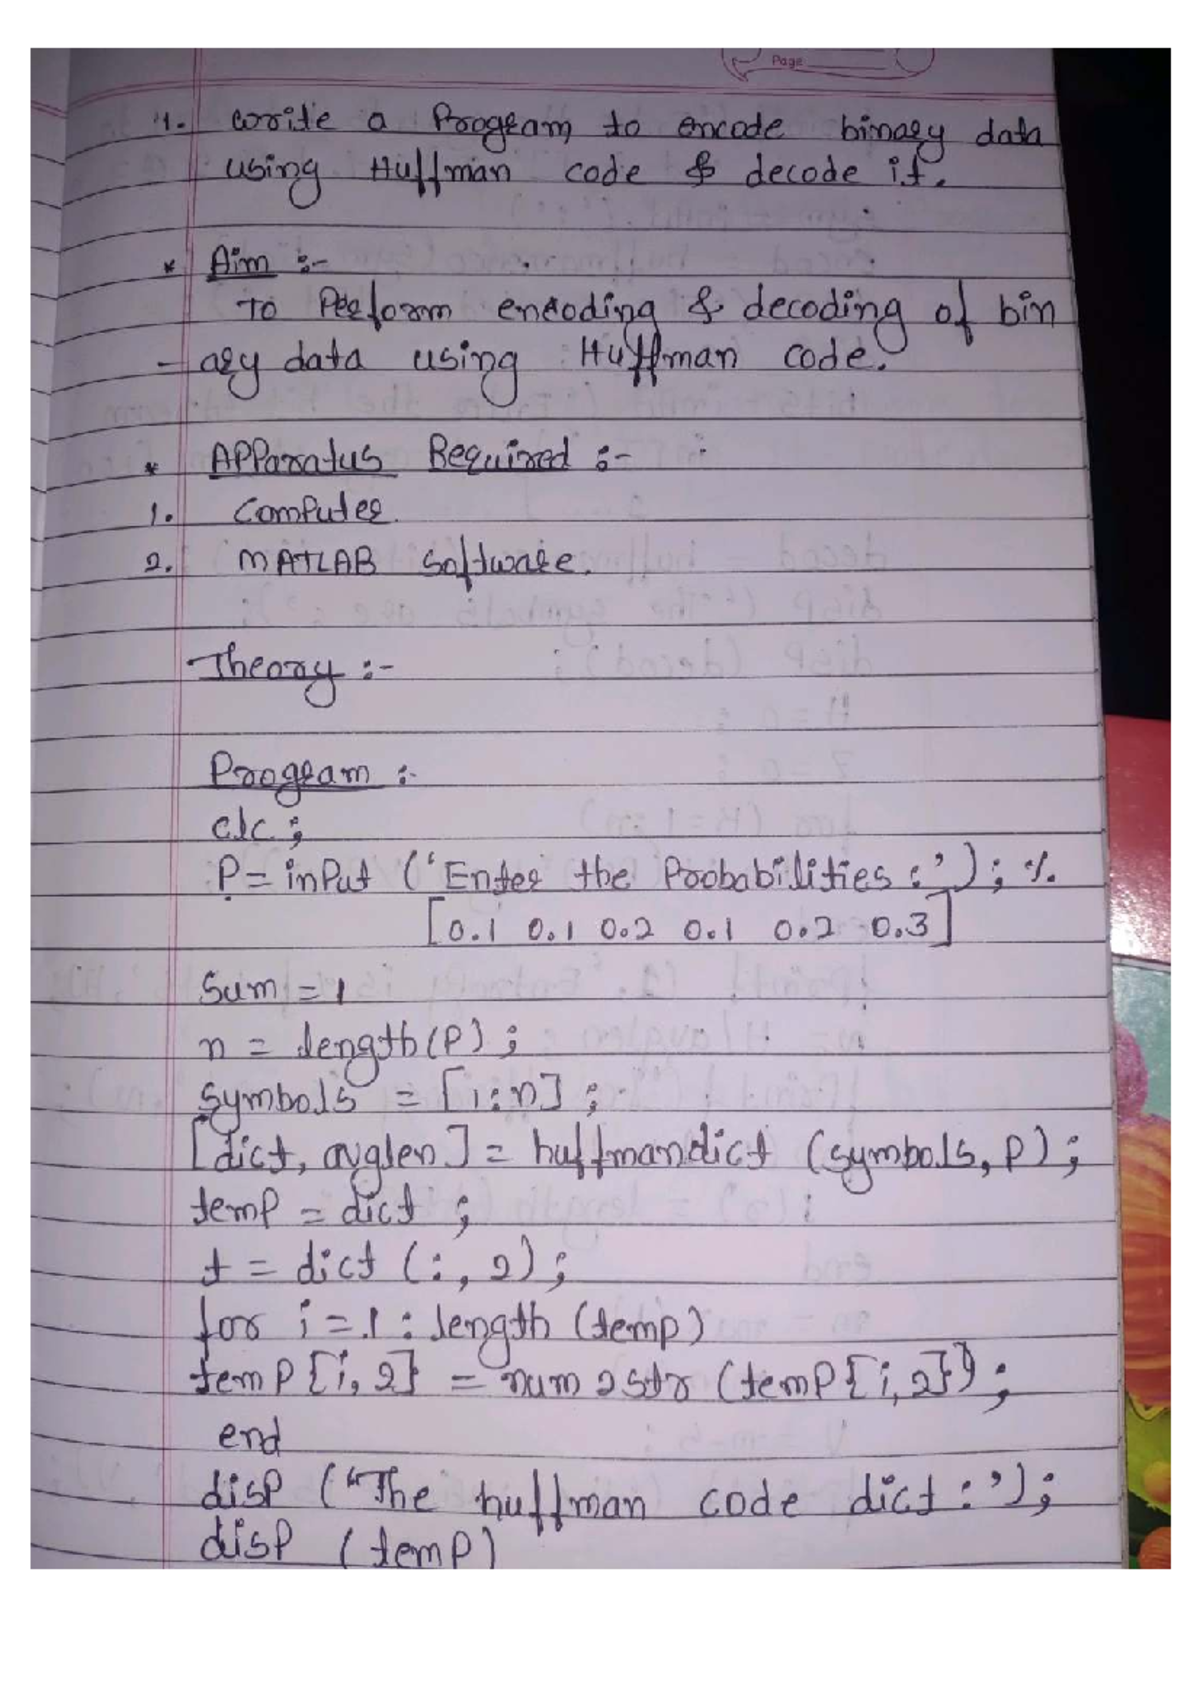 Page
1. Write a Program to encode binary data
using Huffman code & decode it.
* Aim :-
To Perform encoding & decoding of bin
- ary data using Huffman code.
* APParatus Required :-
1. Computer.
2. MATLAB Software.
Theory :-
Program :-
clc ;
P = inPut (‘Enter the Probabilities :’) ; %
[0.1 0.1 0.2 0.1 0.2 0.3]
Sum = 1
n = length(P) ;
symbols = [1:n] ;
[dict, avglen] = huffmandict (symbols, P) ;
temp = dict ;
t = dict (:, 2) ;
for i = 1 : length (temp)
temp {i, 2} = num2str (temp {i, 2}) ;
end
disp (“The huffman code dict :’) ;
disp (temp)